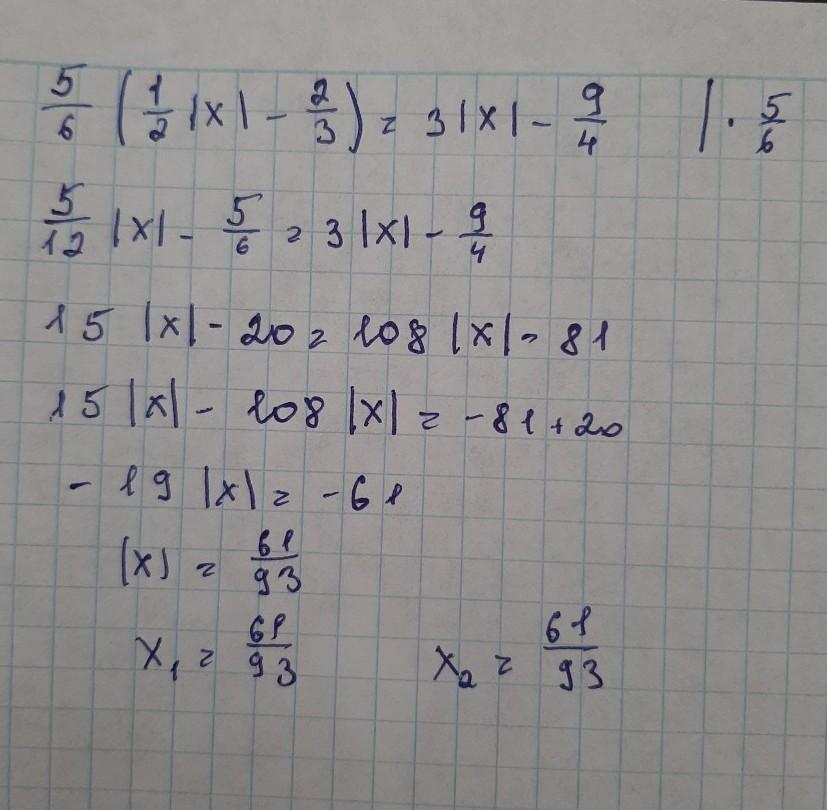 5/6 (1/2 |x| - 2/3) = 3 |x| - 9/4 | · 5/6
5/12 |x| - 5/6 = 3 |x| - 9/4
15 |x| - 20 = 108 |x| - 81
15 |x| - 108 |x| = -81 + 20
- 19 |x| = -61
|x| = 61/93
x₁ = 61/93 x₂ = 61/93